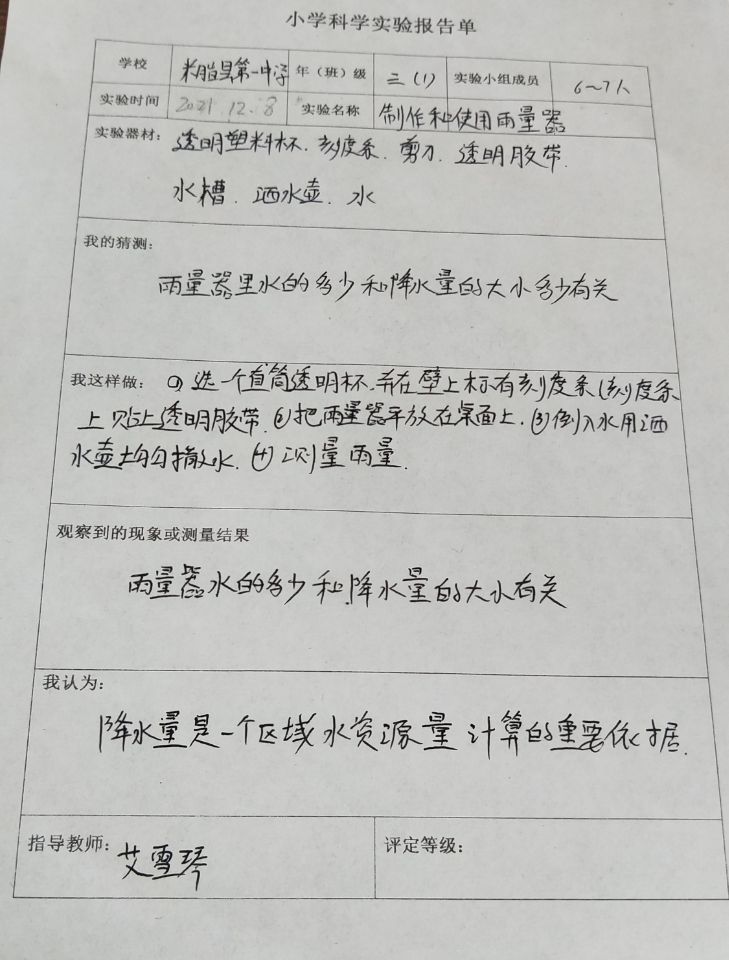 小学科学实验报告单
学校 米脂县第一中学 年（班）级 三（1） 实验小组成员 6～7人
实验时间 2021.12.8 实验名称 制作和使用雨量器
实验器材： 透明塑料杯、刻度条、剪刀、透明胶带、
水槽、洒水壶、水
我的猜测：
雨量器里水的多少和降水量的大小多少有关
我这样做： ①选一个直筒透明杯、并在壁上标有刻度条（刻度条
上贴上透明胶带．②把雨量器平放在桌面上．③倒入水用洒
水壶均匀撒水．④测量雨量．
观察到的现象或测量结果
雨量器水的多少和降水量的大小有关
我认为：
降水量是一个区域水资源量计算的重要依据．
指导教师： 艾雪琴 评定等级：